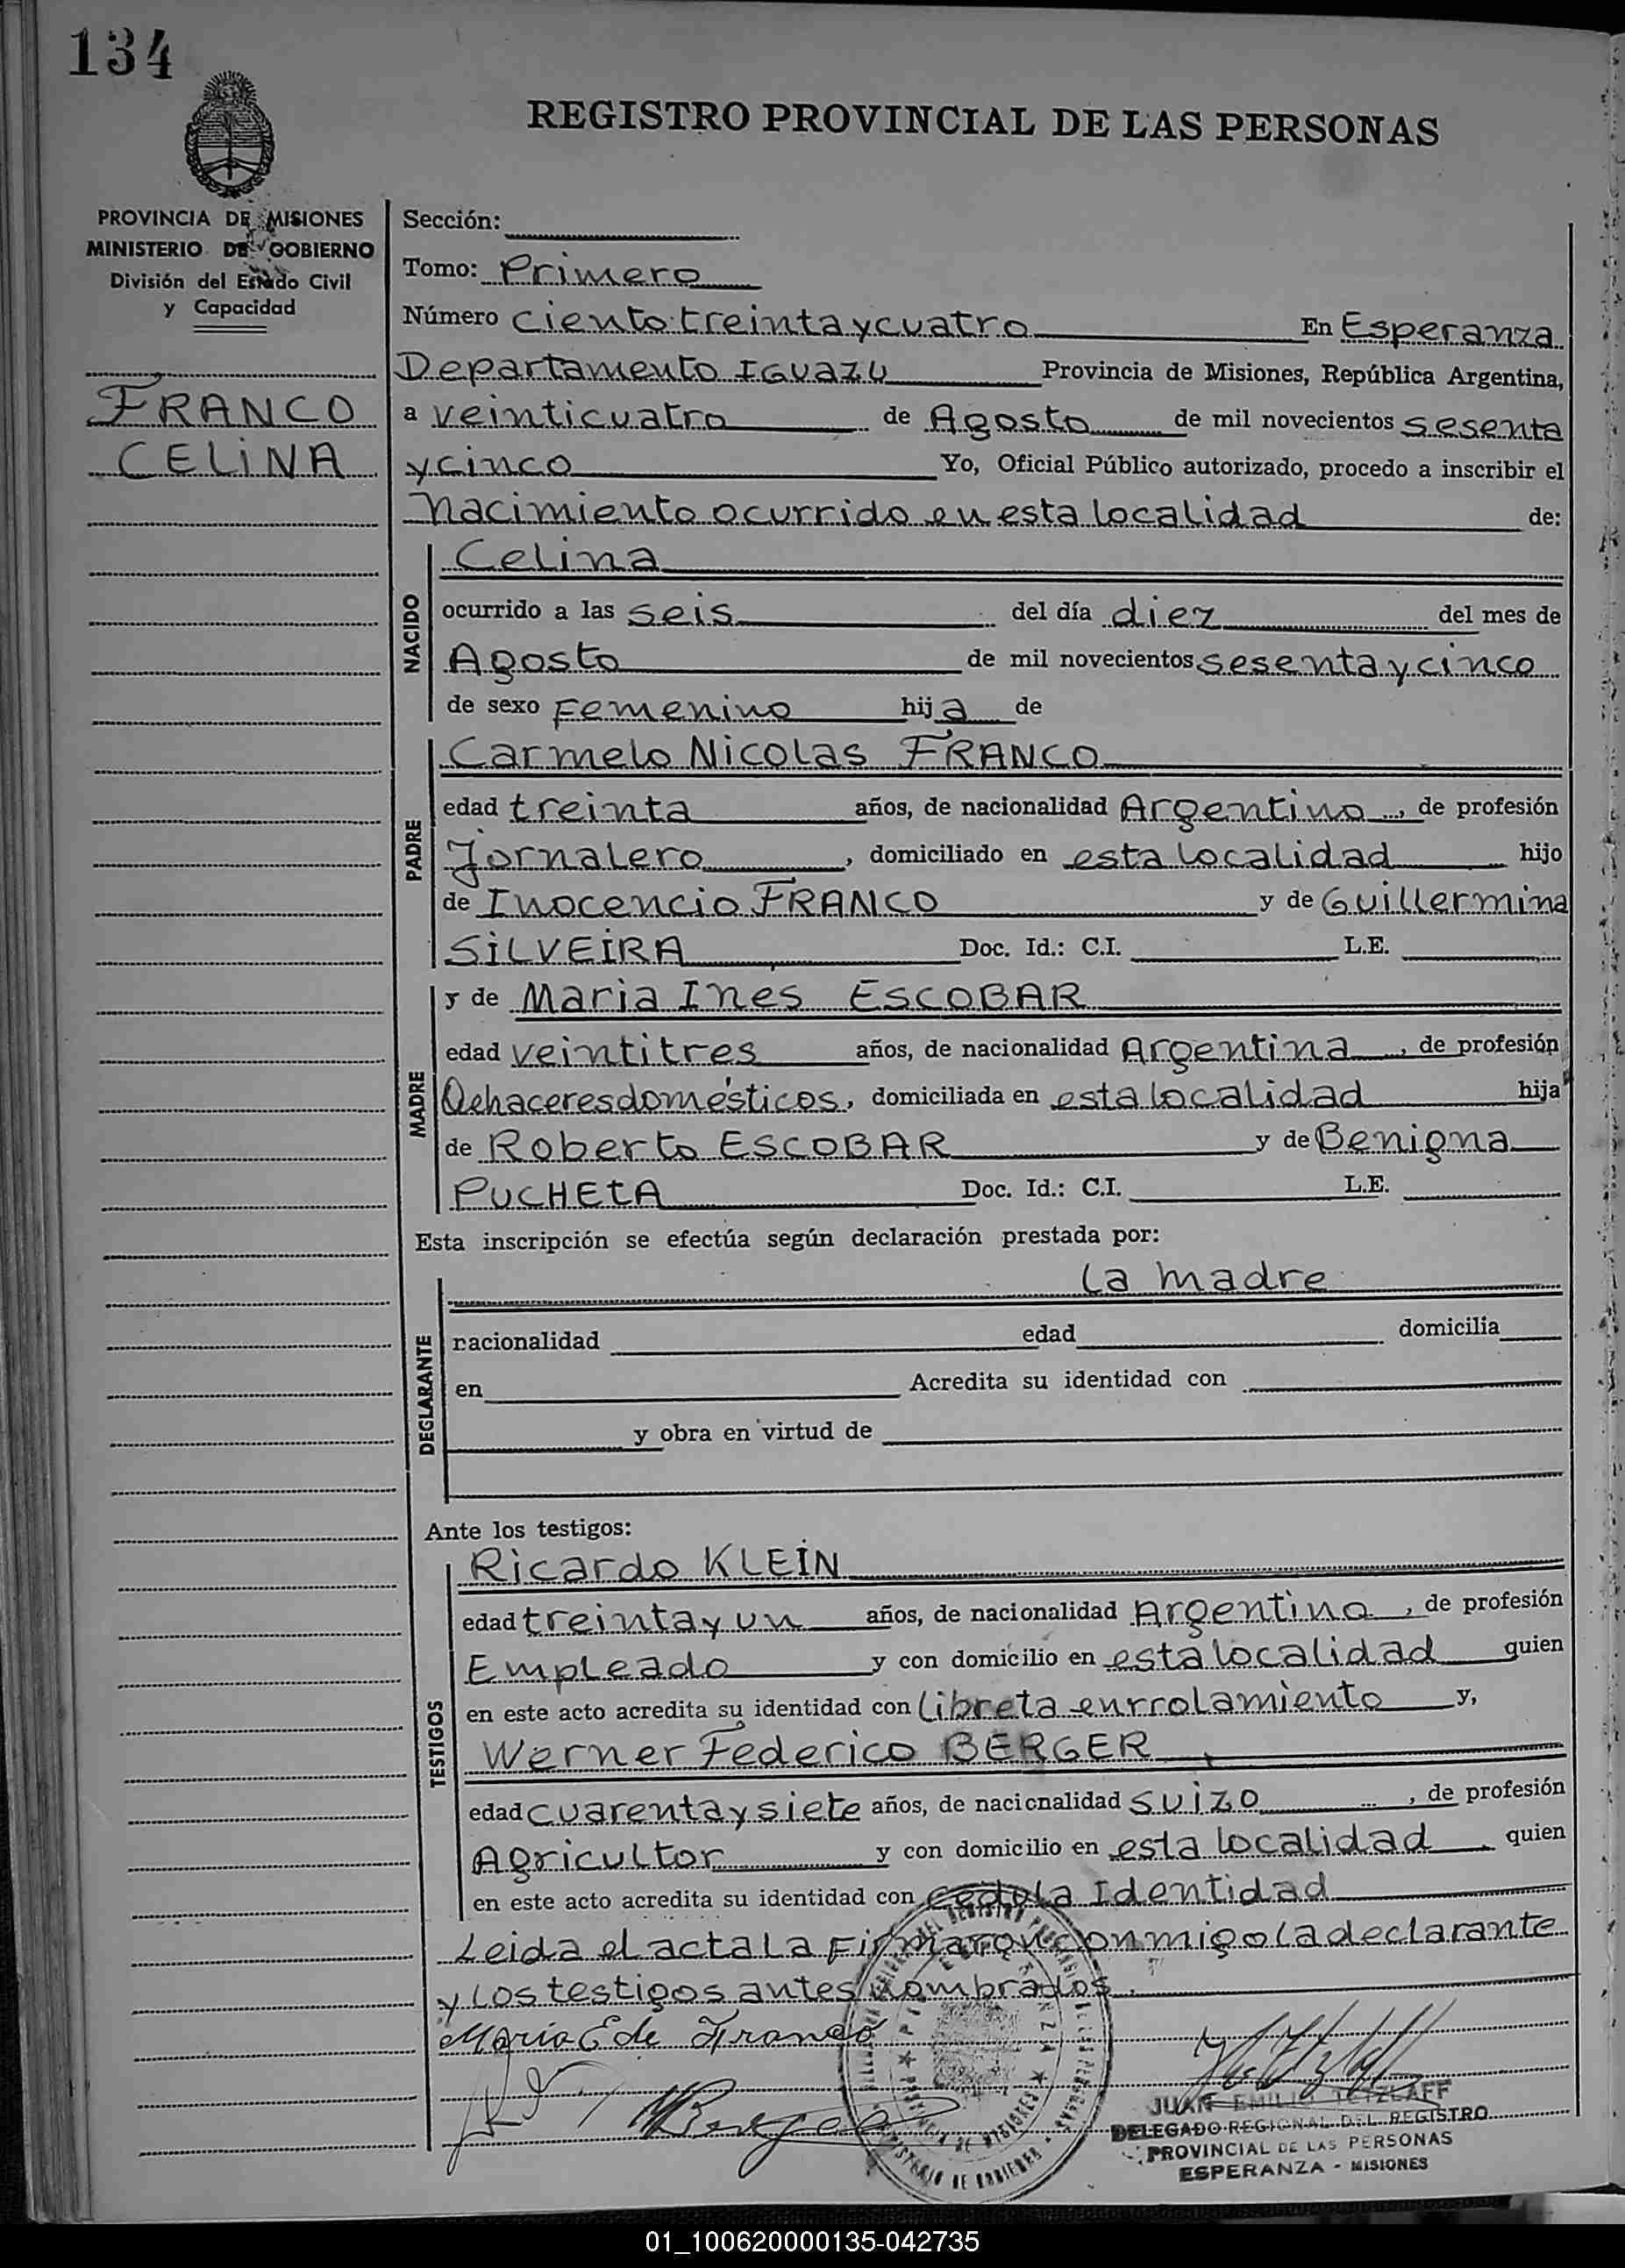 134
REGISTRO PROVINCIAL DE LAS PERSONAS
PROVINCIA DE MISIONES
MINISTERIO DE GOBIERNO
División del Estado Civil
y Capacidad
FRANCO
CELINA
Sección:
Tomo: Primero
Número ciento treinta y cuatro En Esperanza
Departamento IGUAZU Provincia de Misiones, República Argentina,
a veinticuatro de Agosto de mil novecientos sesenta
y cinco Yo, Oficial Público autorizado, procedo a inscribir el
nacimiento ocurrido en esta localidad de:
NACIDO
Celina
ocurrido a las seis del día diez del mes de
Agosto de mil novecientos sesenta y cinco
de sexo Femenino hija de
PADRE
Carmelo Nicolas FRANCO
edad treinta años, de nacionalidad Argentino, de profesión
Jornalero, domiciliado en esta localidad hijo
de Inocencio FRANCO y de Guillermina
SILVEIRA Doc. Id.: C.I. L.E.
MADRE
y de Maria Ines ESCOBAR
edad veintitres años, de nacionalidad Argentina, de profesión
Qehaceres domésticos, domiciliada en esta localidad hija
de Roberto ESCOBAR y de Benigna
PUCHETA Doc. Id.: C.I. L.E.
Esta inscripción se efectúa según declaración prestada por:
DECLARANTE
la madre
nacionalidad edad domicilia
en Acredita su identidad con
y obra en virtud de
Ante los testigos:
TESTIGOS
Ricardo KLEIN
edad treinta y un años, de nacionalidad Argentino, de profesión
Empleado y con domicilio en esta localidad quien
en este acto acredita su identidad con libreta enrrolamiento y,
Werner Federico BERGER
edad cuarenta y siete años, de nacionalidad suizo, de profesión
Agricultor y con domicilio en esta localidad quien
en este acto acredita su identidad con cedula Identidad
Leida el acta la Firmaron conmigo la declarante
y los testigos antes nombrados.
Maria E de Franco
JUAN EMILIO TETZLAFF
DELEGADO REGIONAL DEL REGISTRO
PROVINCIAL DE LAS PERSONAS
ESPERANZA - MISIONES
01_100620000135-042735